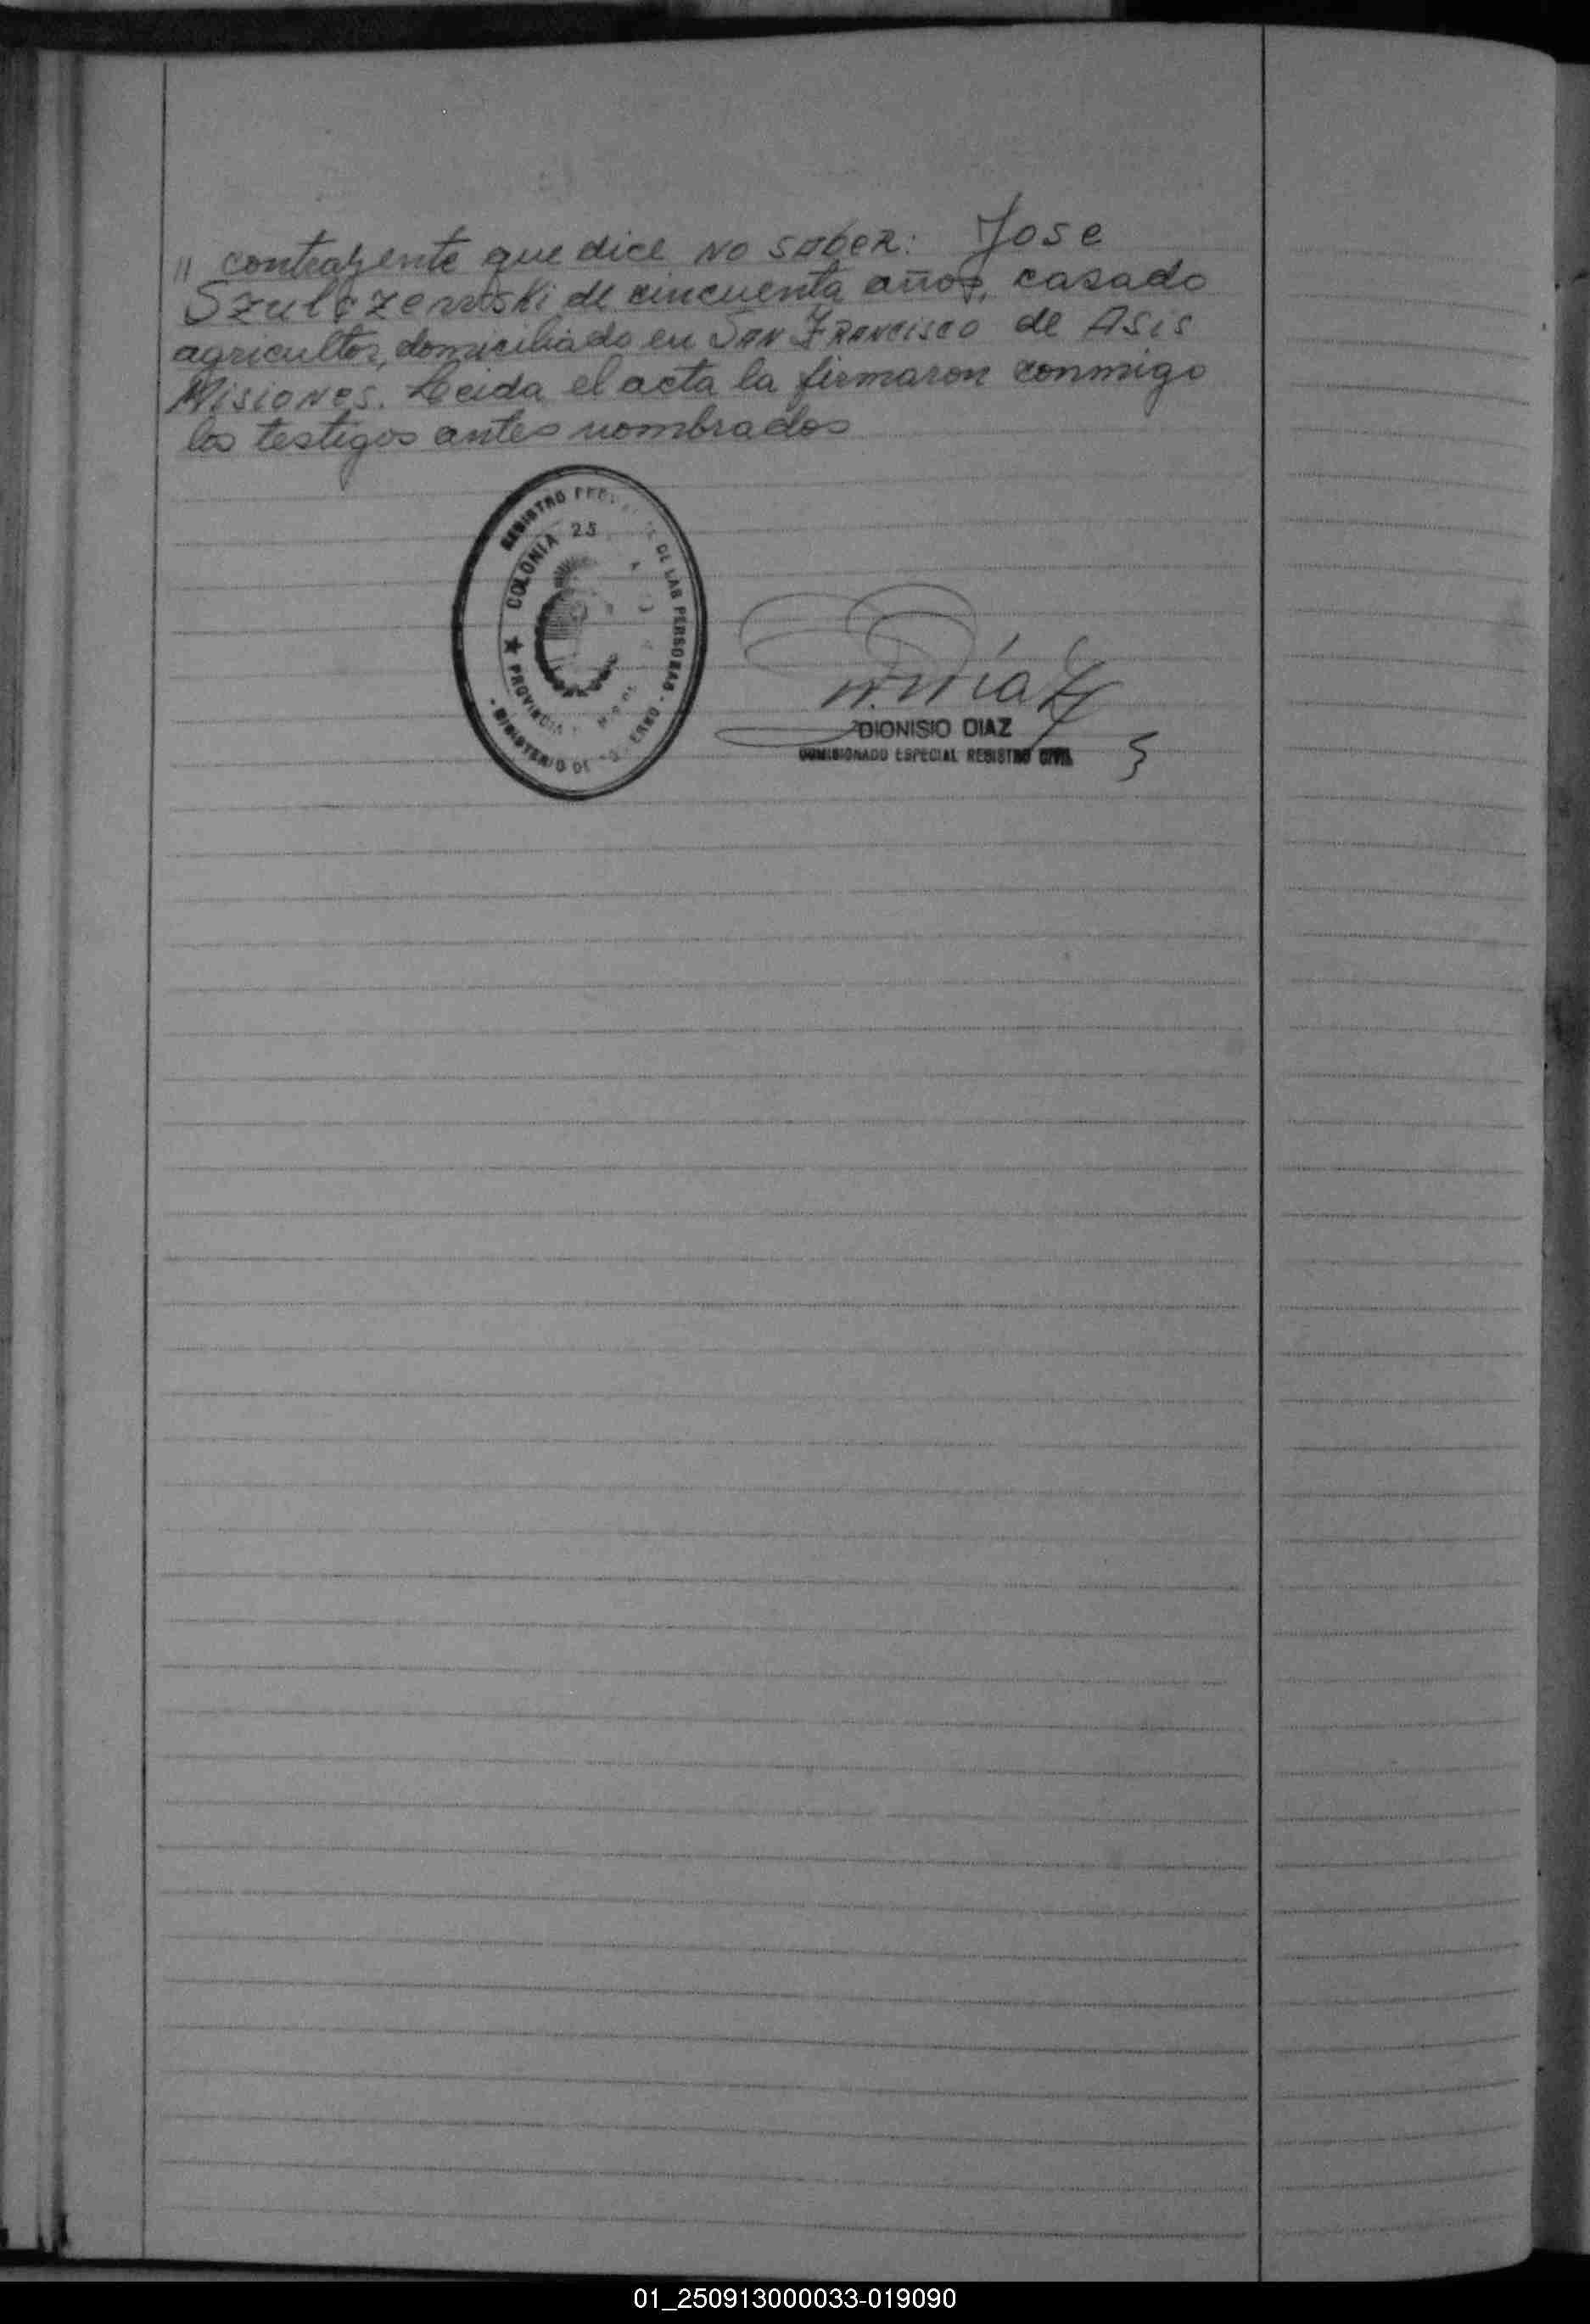 " contrayente que dice NO SABER: Jose
Szulczewski de cincuenta años, casado
agricultor, domiciliado en SAN FRANCISCO de Asis
Misiones. Leida el acta la firmaron conmigo
los testigos antes nombrados
REGISTRO DE LAS PERSONAS
COLONIA 25
PROVINCIA
MINISTERIO DE
Diaz
DIONISIO DIAZ
COMISIONADO ESPECIAL REGISTRO CIVIL
01_250913000033-019090